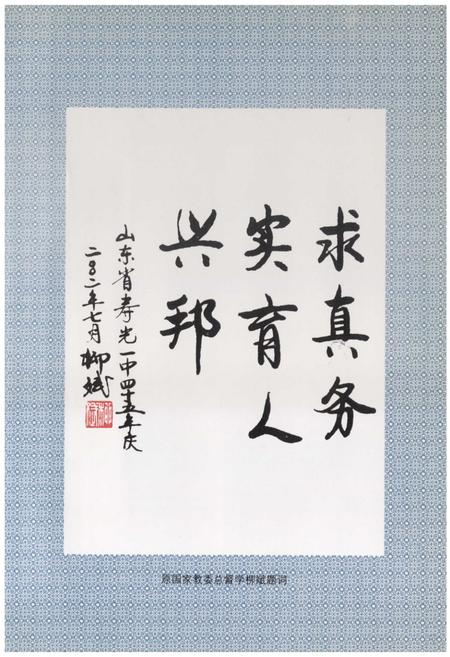 求真务
实育人
兴邦
山东省寿光一中四十五年庆
二〇〇二年七月 柳斌
原国家教委总督学柳斌题词